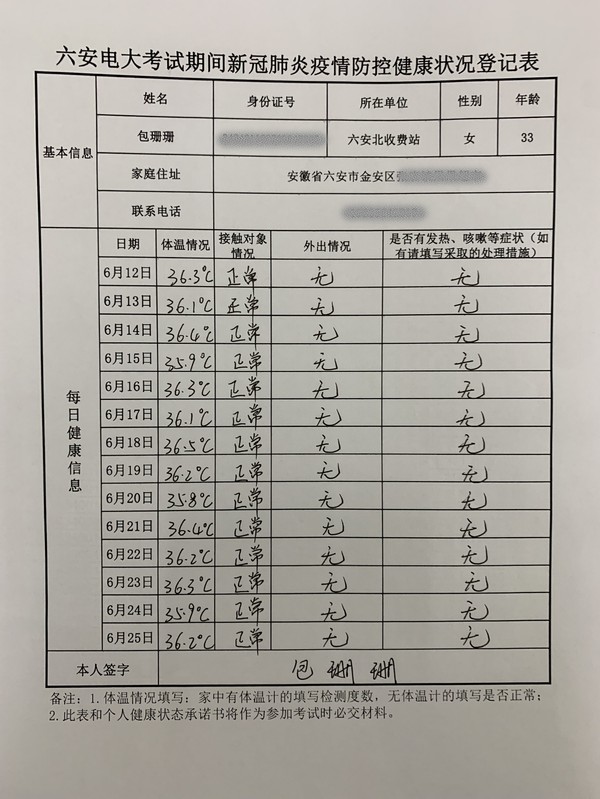 六安电大考试期间新冠肺炎疫情防控健康状况登记表
基本信息 姓名 身份证号 所在单位 性别 年龄
包珊珊 六安北收费站 女 33
家庭住址 安徽省六安市金安区
联系电话
每日健康信息 日期 体温情况 接触对象情况 外出情况 是否有发热、咳嗽等症状（如有请填写采取的处理措施）
6月12日 36.3℃ 正常 无 无
6月13日 36.1℃ 正常 无 无
6月14日 36.4℃ 正常 无 无
6月15日 35.9℃ 正常 无 无
6月16日 36.3℃ 正常 无 无
6月17日 36.1℃ 正常 无 无
6月18日 36.5℃ 正常 无 无
6月19日 36.2℃ 正常 无 无
6月20日 35.8℃ 正常 无 无
6月21日 36.4℃ 正常 无 无
6月22日 36.2℃ 正常 无 无
6月23日 36.3℃ 正常 无 无
6月24日 35.9℃ 正常 无 无
6月25日 36.2℃ 正常 无 无
本人签字 包珊珊
备注：1.体温情况填写：家中有体温计的填写检测度数，无体温计的填写是否正常；
2.此表和个人健康状态承诺书将作为参加考试时必交材料。